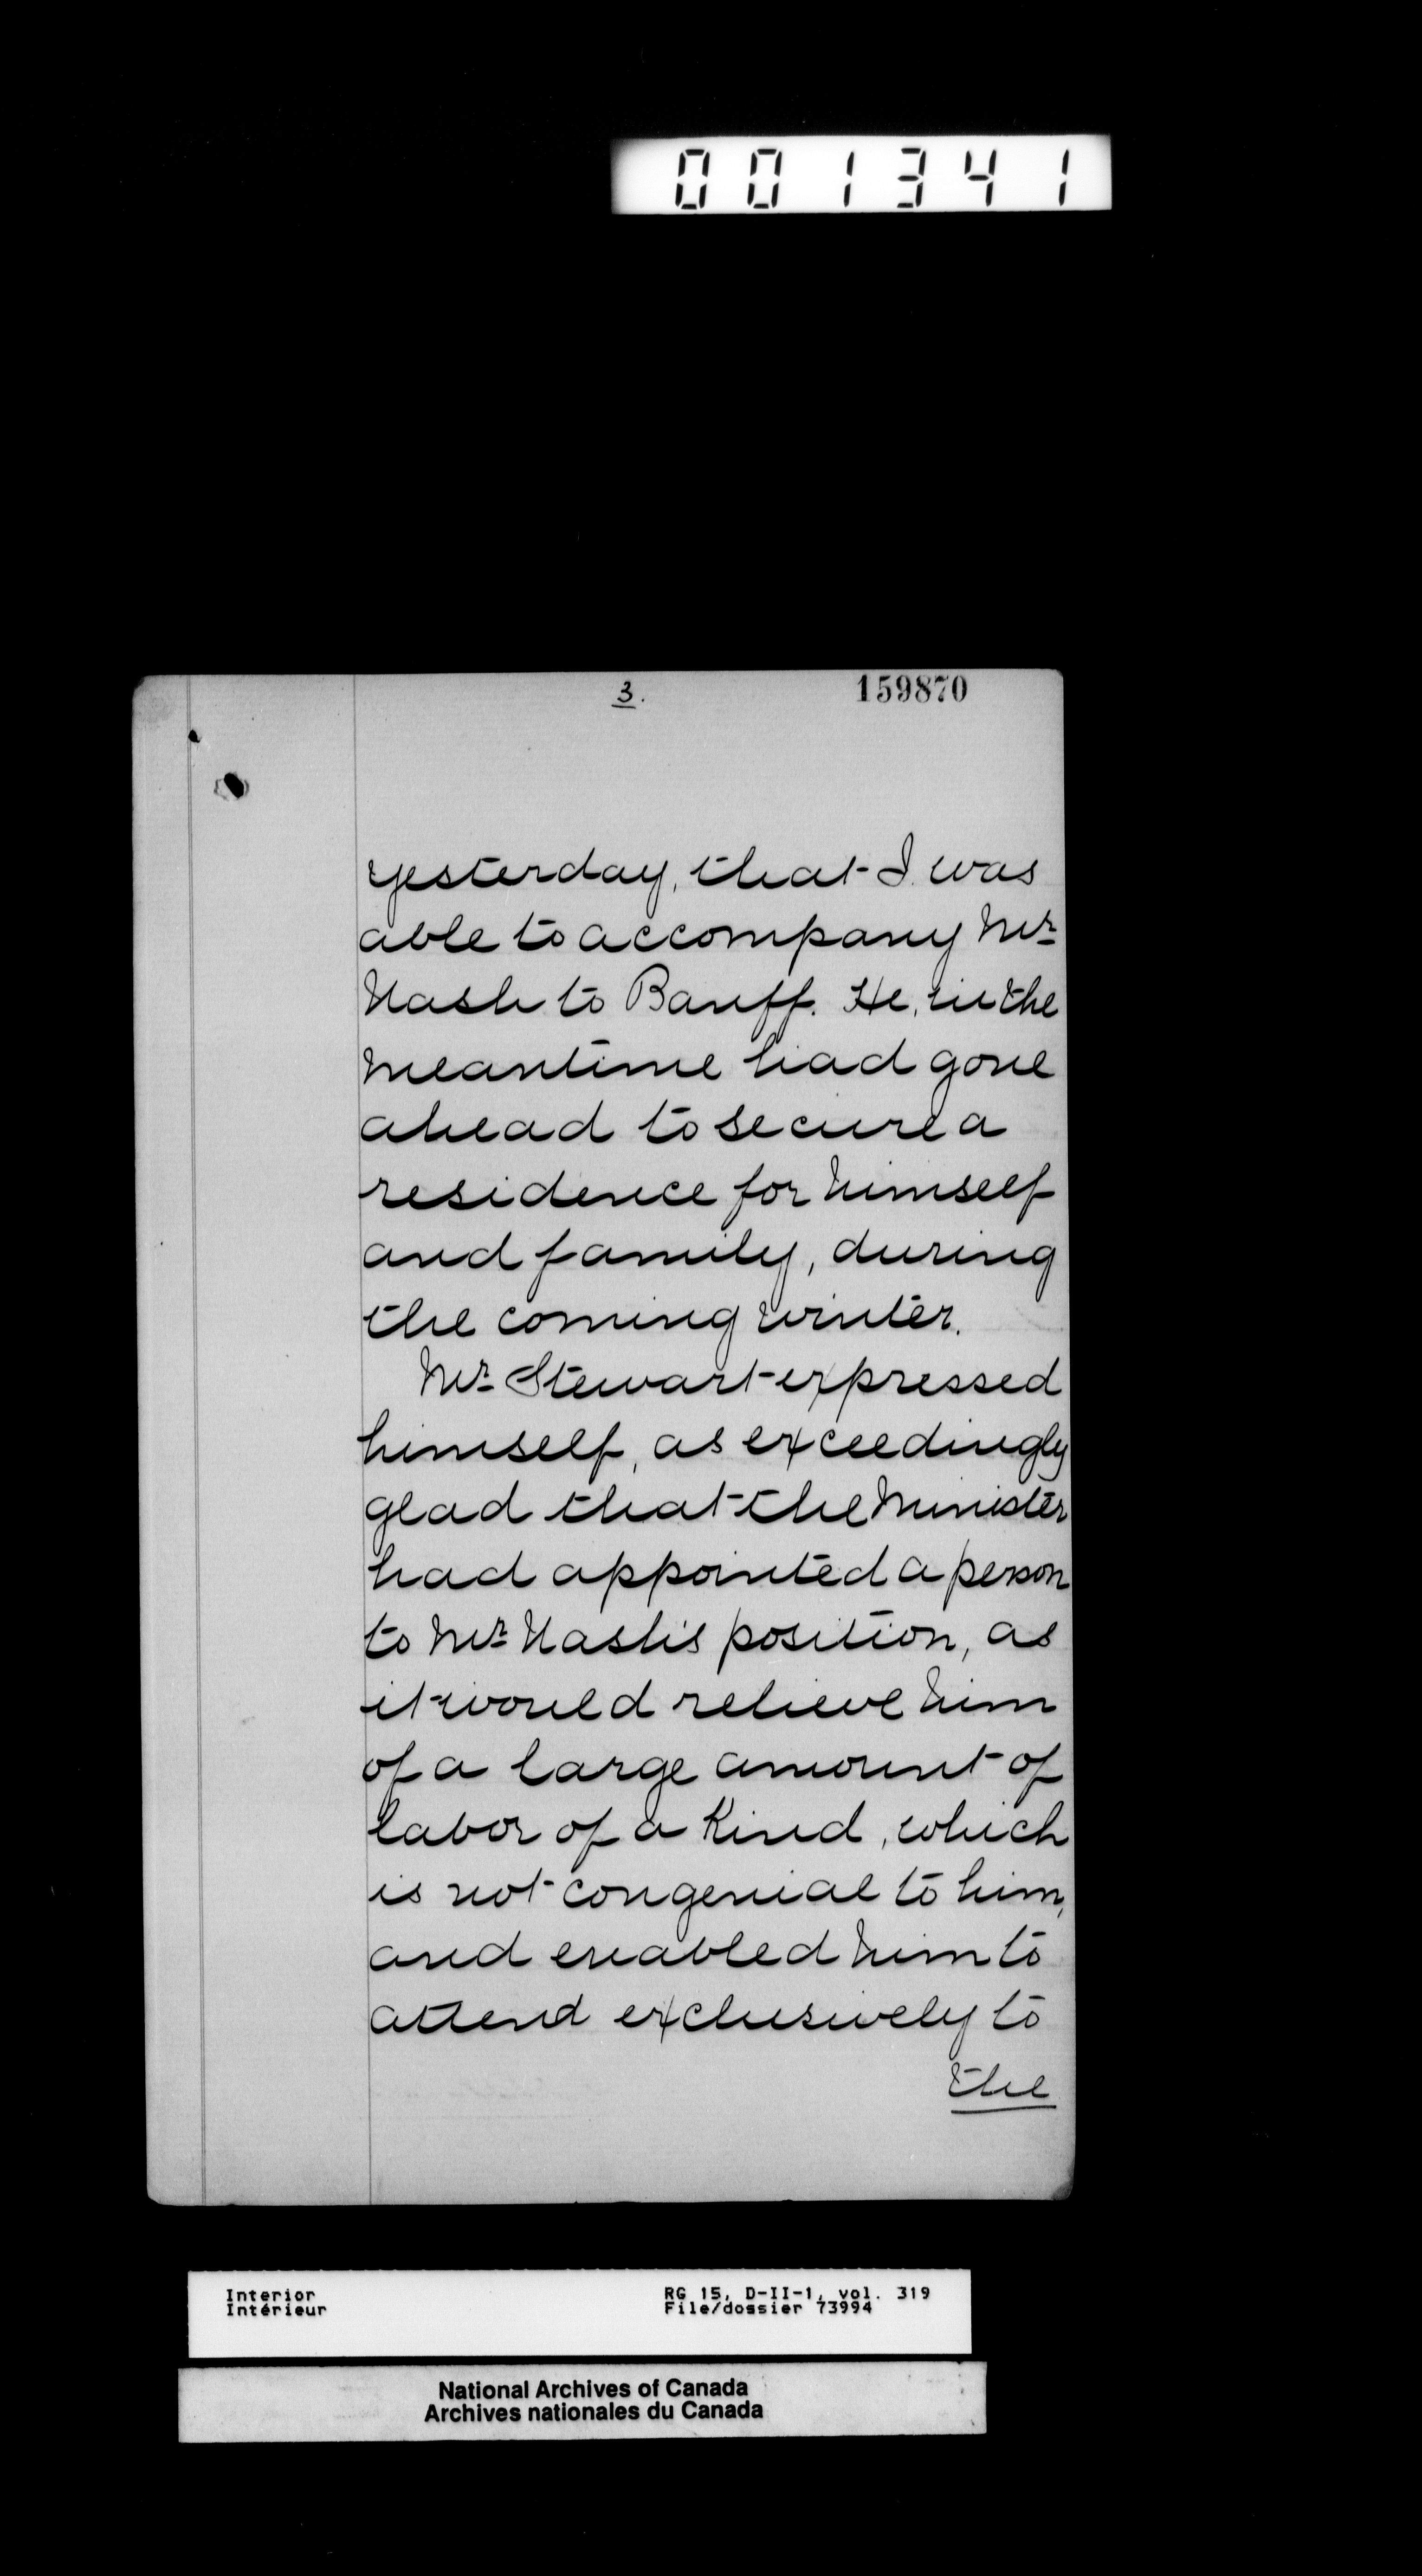 001341
3. 159870
yesterday, that I was
able to accompany Mr
Nash to Banff. He, in the
meantime had gone
ahead to secure a
residence for himself
and family, during
the coming winter.
Mr Stewart expressed
himself, as exceedingly
glad that the Minister
had appointed a person
to Mr Nash's position, as
it would relieve him
of a large amount of
labor of a kind, which
is not congenial to him,
and enabled him to
attend exclusively to
the
Interior RG 15, D-II-1, vol. 319
Intérieur File/dossier 73994
National Archives of Canada
Archives nationales du Canada